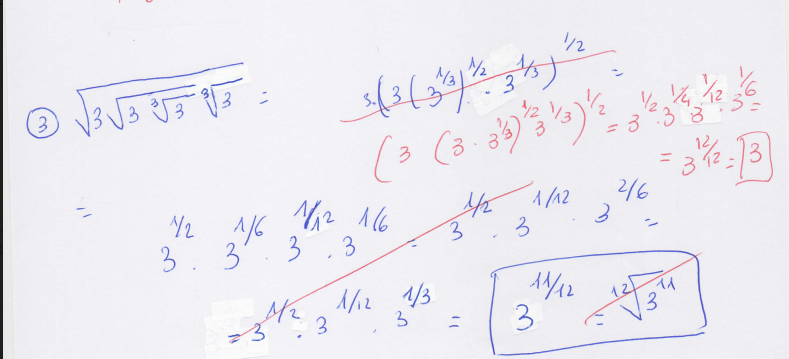 ③ √(3√(3 ∛3) ∛3) = 3·(3(3^1/3)^1/2 · 3^1/3)^1/2 =
(3 (3 · 3^1/3)^1/2 3^1/3)^1/2 = 3^1/2 · 3^1/4 3^1/12 · 3^1/6 =
= 3^12/12 = 3
= 3^1/2 · 3^1/6 · 3^1/12 · 3^1/6 = 3^1/2 · 3^1/12 · 3^2/6 =
= 3^1/2 · 3^1/12 · 3^1/3 = 3^11/12 = ¹²√3^11